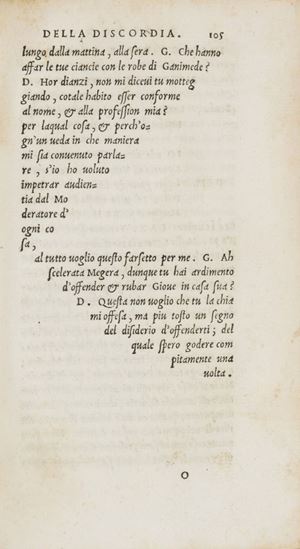 DELLA DISCORDIA. 105
lungo, dalla mattina, alla sera. G. Che hanno
affar le tue ciancie con le robe di Ganimede?
D. Hor dianzi, non mi diceui tu motteg
giando, cotale habito esser conforme
al nome, & alla profession mia?
per laqual cosa, & perch'o=
gn'un ueda in che maniera
mi sia conuenuto parla=
re, s'io ho uoluto
impetrar audien=
tia dal Mo
deratore d'
ogni co
sa,
al tutto uoglio questo farsetto per me. G. Ah
scelerata Megera, dunque tu hai ardimento
d'offender & rubar Gioue in casa sua?
D. Questa non uoglio che tu la chia
mi offesa, ma piu tosto un segno
del disiderio d'offenderti; del
quale spero godere com
pitamente una
uolta.
O